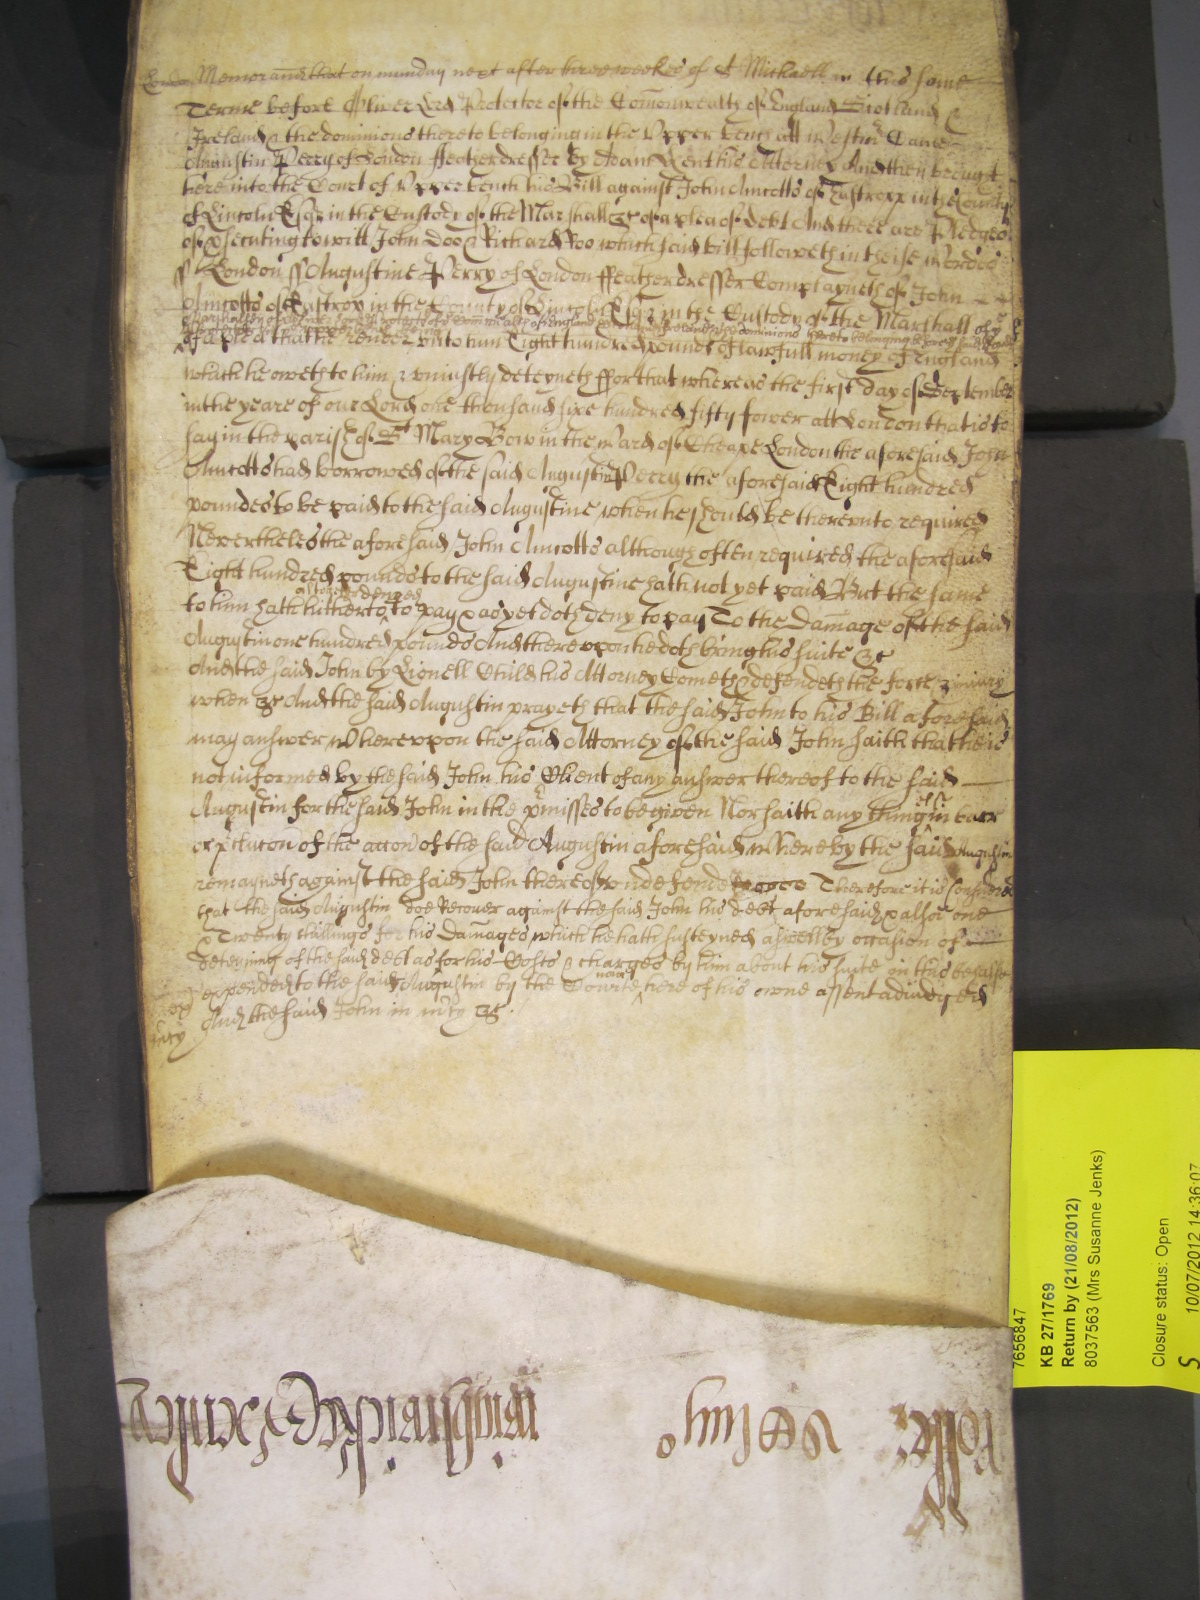 London Memorand that on munday next after three weekes of St Michaell in this same
Terme before Oliver Lord Protector of the Comonwealth of England Scotland &
Ireland & the dominions thereto belonging in the Upper bench att Westmr Came
Augustin Perry of London ffeatherdresser by Adam his Atterney And then brought
here into the Court of Upper bench his Bill against John Amcotts of in the County
of Lincoln Esqr in the Custody of the Marshall &c of a plea of debt And there are Pledges
of psecuting to witt John Doo & Richard Roo which said bill followeth in theise wordes
ss London ss Augustine Perry of London ffeatherdresser Complayneth of John
Amcotts of in the County of Lincoln Esqr in the Custody of the Marshall of ye
of a plea that he render unto him Eight hundred pounds of lawfull money of England
which he oweth to him & uniustly deteyneth ffor that whereas the first day of September
in the yeare of our Lord one thousand sixe hundred fifty fower att London that is to
say in the parish of St Mary Bow in the ward of Cheape London the aforesaid John
Amcotts had borrowed of the said Augustin Perry the aforesaid Eight hundred
poundes to be paid to the said Augustine when he should be thereunto required
Neverthelesse the aforesaid John Amcotts although often required the aforesaid
Eight hundred pounds to the said Augustine hath not yet paid But the same
to him hath hitherto altogether denyed to pay & as yet doth deny to pay To the Damage of the said
Augustin one hundred pounds And thereupon he doth bring his suite &c
And the said John by Lionell his Attorney Cometh & defendeth the force & iniury
when &c And the said Augustin prayeth that the said John to his Bill aforesaid
may answer Whereupon the said Attorney of the said John saith that he is
not informed by the said John his Client of any answer thereof to the said
Augustin for the said John in the pmisses to be given Nor saith any thing els in barr
or pclucon of the accon of the said Augustin aforesaid Whereby the said Augustin
remayneth against the said John thereof undefended Therefore it is considered
that the said Augustin doe Recover against the said John his debt aforesaid & alsoe one
& Twenty shillings for his Damages which he hath susteyned aswell by occasion of
deteyning of the said debt as for his Costs & charges by him about his suite in this behalfe
expended to the said Augustin by the Courte now here of his owne assent adiudged
And the said John in mcy &c
mcy
7656847
KB 27/1769
Return by (21/08/2012)
8037563 (Mrs Susanne Jenks)
Closure status: Open
S 10/07/2012 14:36:07